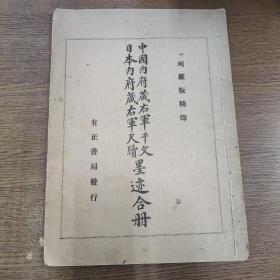 珂羅版精印
中國內府藏右軍千文
日本內府藏右軍尺牘
墨迹合册
有正書局發行